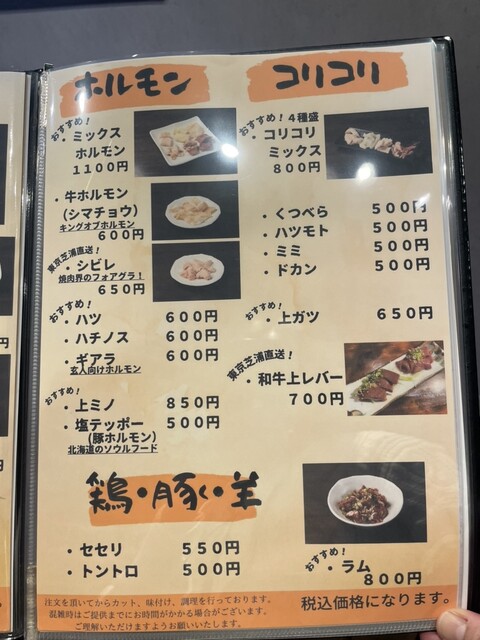 ホルモン
おすすめ!
・ミックス
ホルモン
1100円
・牛ホルモン
(シマチョウ)
キングオブホルモン
600円
東京芝浦直送!
・シビレ
焼肉界のフォアグラ!
650円
おすすめ!
・ハツ 600円
・ハチノス 600円
・ギアラ 600円
玄人向けホルモン
おすすめ!
・上ミノ 850円
・塩テッポー 500円
(豚ホルモン)
北海道のソウルフード
コリコリ
おすすめ!4種盛
・コリコリ
ミックス
800円
・くつべら 500円
・ハツモト 500円
・ミミ 500円
・ドカン 500円
おすすめ!
・上ガツ 650円
東京芝浦直送!
・和牛上レバー
700円
鶏・豚・羊
・セセリ 550円
・トントロ 500円
おすすめ!
・ラム
800円
注文を頂いてからカット、味付け、調理を行っております。
混雑時はご提供までにお時間がかかる場合がございます。
ご理解いただけますようお願いいたします。
税込価格になります。